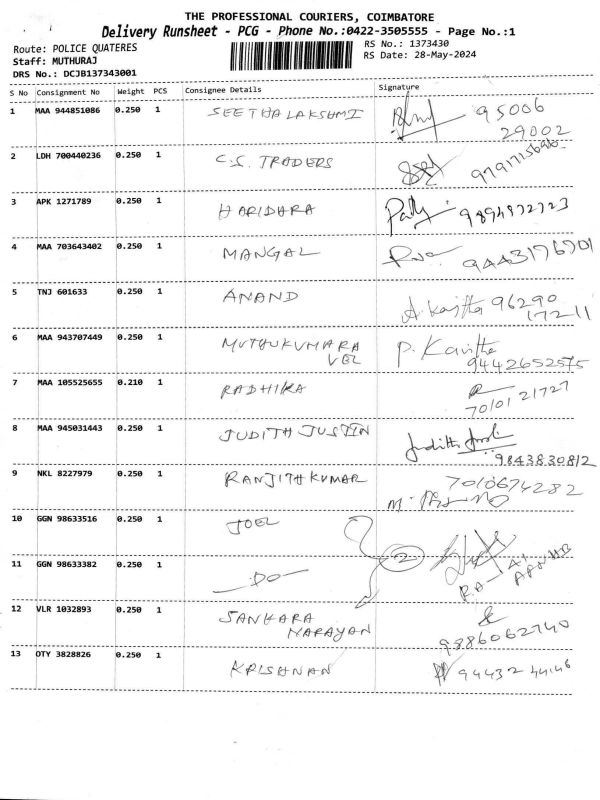 THE PROFESSIONAL COURIERS, COIMBATORE
Delivery Runsheet - PCG - Phone No.:0422-3505555 - Page No.:1
Route: POLICE QUATERES
RS No.: 1373430
Staff: MUTHURAJ
RS Date: 28-May-2024
DRS No.: DCJB137343001
S No Consignment No Weight PCS Consignee Details Signature
1 MAA 944851086 0.250 1 SEETHALAKSHMI 95006
29002
2 LDH 700440236 0.250 1 C.S. TRADERS
3 APK 1271789 0.250 1 HARIDHRA 9894972723
4 MAA 703643402 0.250 1 MANGAL 9443176701
5 TNJ 601633 0.250 1 ANAND A. Kavitha 96290
17211
6 MAA 943707449 0.250 1 MUTHUKUMARA P. Kavitha
VEL 9442652575
7 MAA 105525655 0.210 1 RADHIKA
7010121727
8 MAA 945031443 0.250 1 JUDITH JUSTIN
9843830812
9 NKL 8227979 0.250 1 RANJITH KUMAR 7010674282
10 GGN 98633516 0.250 1 JOEL
11 GGN 98633382 0.250 1 -DO- 2
12 VLR 1032893 0.250 1 SANKARA
NARAYAN 9886062740
13 OTY 3828826 0.250 1 KRISHNAN 94432 44146